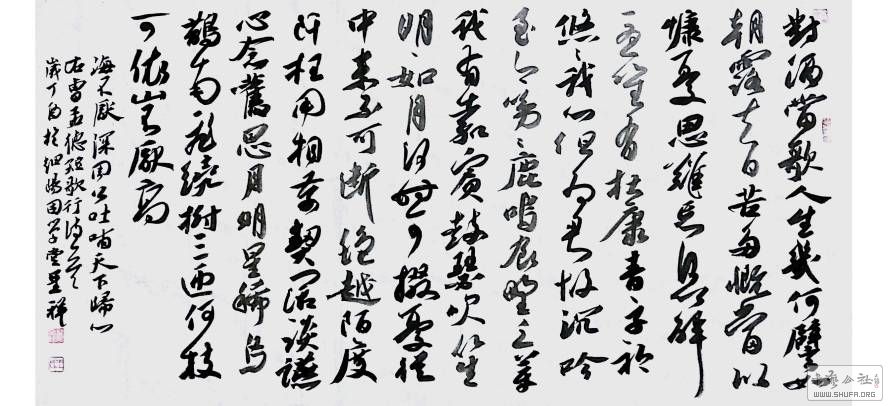 對酒當歌人生幾何譬如
朝露去日苦多慨當以
慷憂思難忘何以解
憂唯有杜康青子衿
悠〻我心但为君故沉吟
至今呦〻鹿鳴食野之苹
我有嘉賓鼓瑟吹笙
明〻如月何時可掇憂從
中來不可斷絕越陌度
阡枉用相存契闊談讌
心念舊恩月明星稀烏
鵲南飛繞樹三匝何枝
可依山不厭高
海不厭深周公吐哺天下歸心
右曹孟德短歌行詩一首
歲丁酉於學堂星祥
公社
WWW.SHUFA.ORG